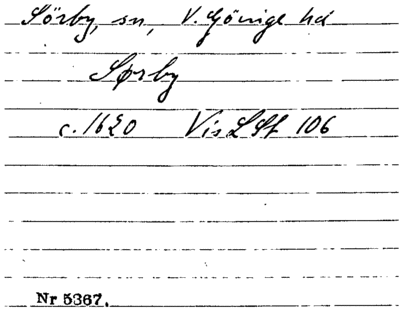 Sörby, sn, V. Göinge hd
Sørby
c. 1620 Vis LSt 106
Nr 5367.